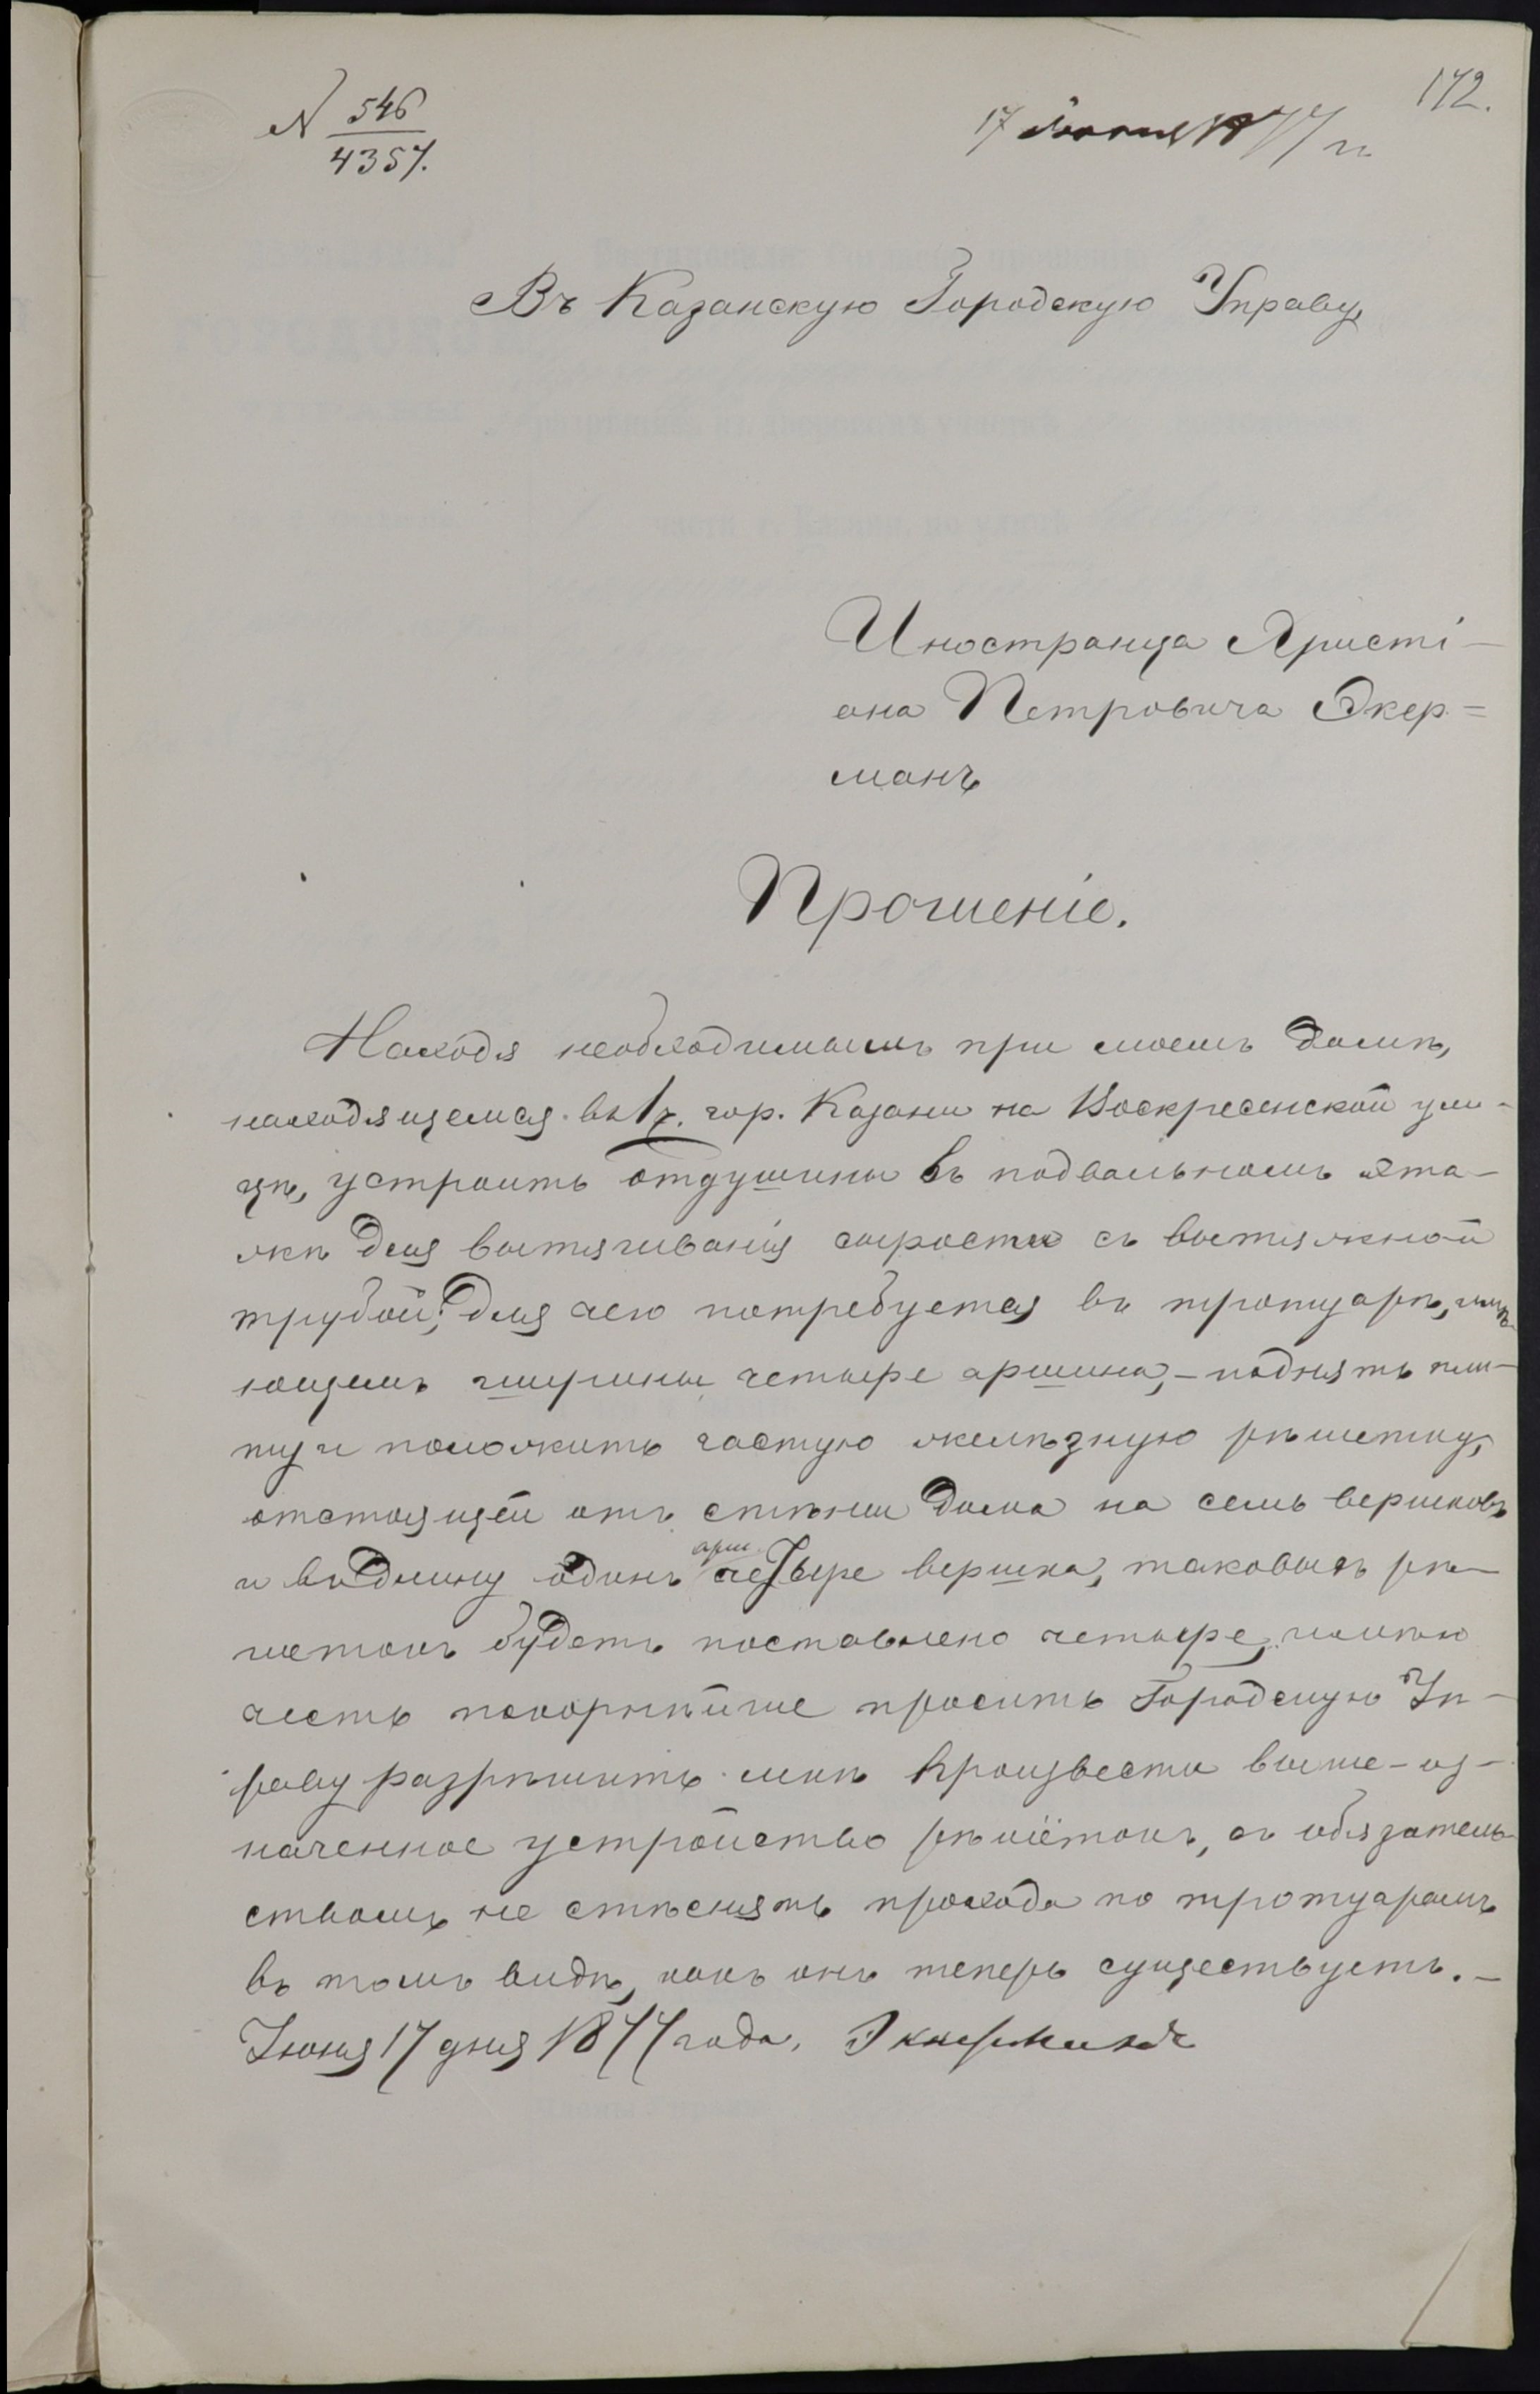 172.
N 546/4357.
17 Июня 1877 г.
Въ Казанскую Городскую Управу,
Иностранца Христі-
ана Петровича Экер=
манъ
Прошеніе.
Находя необходимымъ при моемъ домѣ,
находящемся въ 1 ч. гор. Казани на Воскресенской ули-
цѣ, устроить отдушины въ подвальномъ эта-
жѣ для вытягиванія сырости съ вытяжной
трубой; для чего потребуется въ тротуарѣ, имѣ-
ющемъ ширины четыре аршина, - поднять пли-
ту и положить частую желѣзную рѣшетку,
отстоящей отъ стѣны дома на семь вершковъ
и въ длину одинъ арш. четыре вершка, таковыхъ рѣ-
шетокъ будетъ поставлено четыре, имѣю
честь покорнѣйше просить Городскую Уп-
раву разрѣшить мнѣ произвести выше-оз-
наченное устройство рѣшётокъ, съ обязатель-
ствомъ не стѣснять прохода по тротуарамъ
въ томъ видѣ, какъ онъ теперь существуетъ. -
Іюня 17 дня 1877 года. Экерманъ